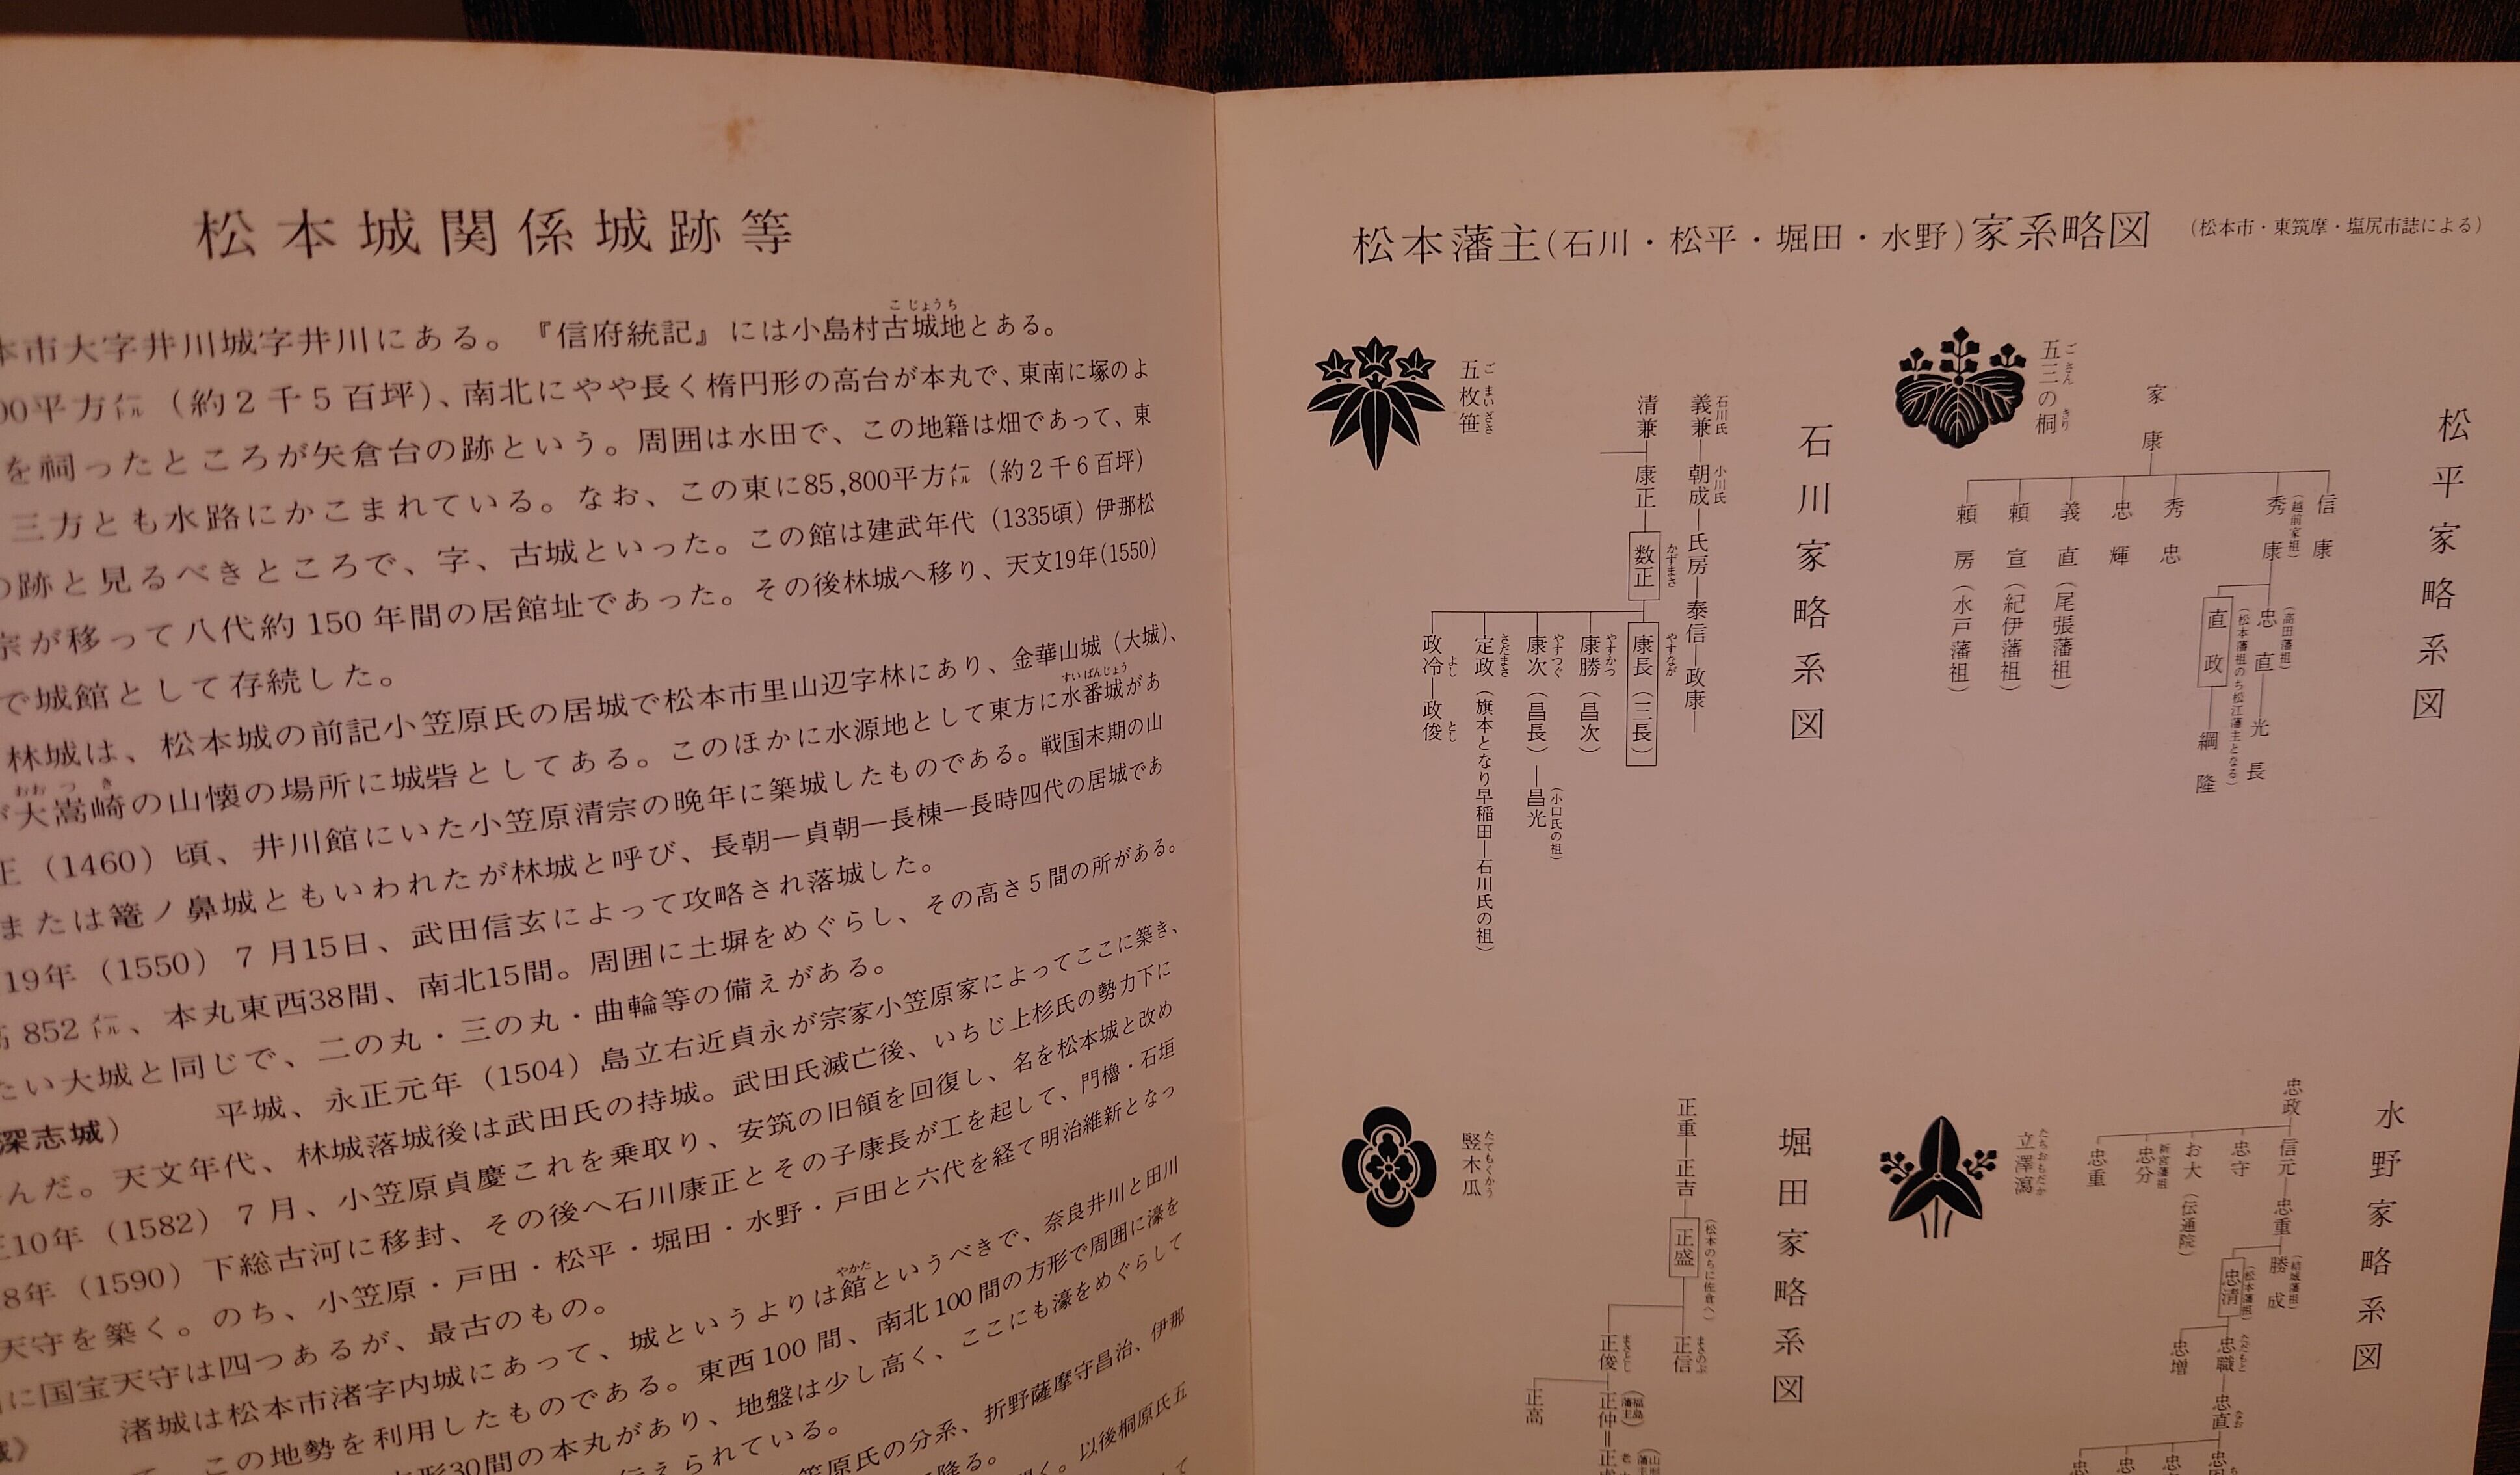 松本城関係城跡等
こじょうち
本市大字井川城字井川にある。『信府統記』には小島村古城地とある。
00平方メートル（約2千5百坪）、南北にやや長く楕円形の高台が本丸で、東南に塚のよ
を祠ったところが矢倉台の跡という。周囲は水田で、この地籍は畑であって、東
三方とも水路にかこまれている。なお、この東に85,800平方メートル（約2千6百坪）
の跡と見るべきところで、字、古城といった。この館は建武年代（1335頃）伊那松
宗が移って八代約150年間の居館址であった。その後林城へ移り、天文19年(1550)
で城館として存続した。
林城は、松本城の前記小笠原氏の居城で松本市里山辺字林にあり、金華山城（大城）、
すいばんじょう
が大嵩崎の山懐の場所に城砦としてある。このほかに水源地として東方に水番城があ
おお つ き
正（1460）頃、井川館にいた小笠原清宗の晩年に築城したものである。戦国末期の山
または篭ノ鼻城ともいわれたが林城と呼び、長朝―貞朝―長棟―長時四代の居城であ
19年（1550）7月15日、武田信玄によって攻略され落城した。
852メートル、本丸東西38間、南北15間。周囲に土塀をめぐらし、その高さ5間の所がある。
たい大城と同じで、二の丸・三の丸・曲輪等の備えがある。
深志城）　平城、永正元年（1504）島立右近貞永が宗家小笠原家によってここに築き、
んだ。天文年代、林城落城後は武田氏の持城。武田氏滅亡後、いちじ上杉氏の勢力下に
正10年（1582）7月、小笠原貞慶これを乗取り、安筑の旧領を回復し、名を松本城と改め
8年（1590）下総古河に移封、その後へ石川康正とその子康長が工を起して、門櫓・石垣
天守を築く。のち、小笠原・戸田・松平・堀田・水野・戸田と六代を経て明治維新となっ
に国宝天守は四つあるが、最古のもの。
やかた
渚城は松本市渚字内城にあって、城というよりは館というべきで、奈良井川と田川
この地勢を利用したものである。東西100間、南北100間の方形で周囲に濠を
方形30間の本丸があり、地盤は少し高く、ここにも濠をめぐらして
伝えられている。
笠原氏の分系、折野薩摩守昌治、伊那
降る。
以後桐原氏五
松本藩主（石川・松平・堀田・水野）家系略図　（松本市・東筑摩・塩尻市誌による）
松平家略系図
五三の桐
ごさん きり
家康
信康
秀康
（越前家祖）
秀忠
忠輝
義直（尾張藩祖）
頼宣（紀伊藩祖）
頼房（水戸藩祖）
忠直―光長
（高田藩祖）
直政―綱隆
（松本藩祖のち松江藩主となる）
石川家略系図
五枚笹
ごまいざさ
石川氏 小川氏
義兼―朝成―氏房―泰信―政康―
清兼―康正―数正
かずまさ
康長（三長）
やすなが
康勝（昌次）
やすかつ
康次（昌長）―昌光
やすつぐ （小口氏の祖）
定政（旗本となり早稲田―石川氏の祖）
さだまさ
政冷―政俊
よし とし
水野家略系図
立澤瀉
たちおもだか
忠政
信元―忠重
忠守
お大（伝通院）
忠分
新宮藩祖
忠重
勝成
（結城藩祖）
忠清
（松本藩祖）
忠職―忠直
ただもと なお
忠増
堀田家略系図
竪木瓜
たてもくかう
正重―正吉―正盛
（松本のちに佐倉へ）
正信
まさのぶ
正俊―正仲
まさとし （福島藩主）
正高